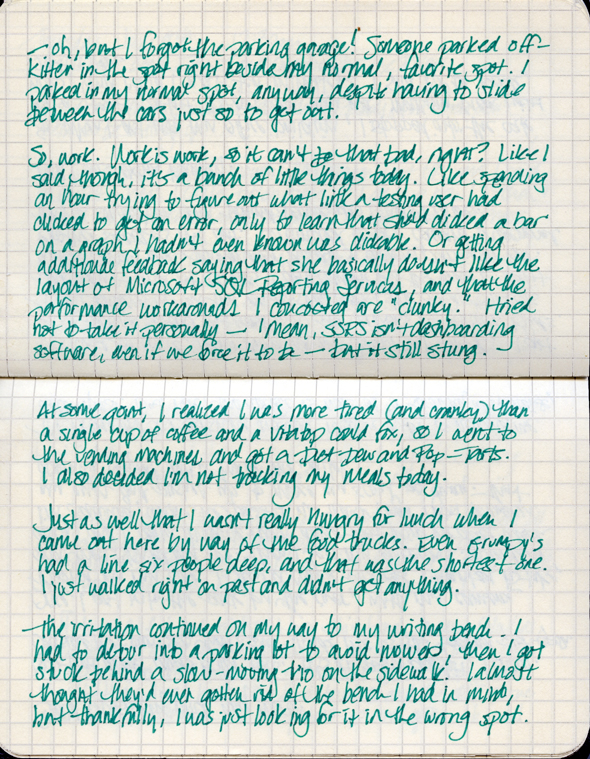 — oh, but I forgot the parking garage! Someone parked off-
kilter in the spot right beside my normal, favorite spot. I
parked in my normal spot, anyway, despite having to slide
between the cars just so to get out.
So, work. Work is work, so it can't be that bad, right? Like I
said though, it's a bunch of little things today. Like spending
an hour trying to figure out what link a testing user had
clicked to get an error, only to learn that she'd clicked a bar
on a graph I hadn't even known was clickable. Or getting
additional feedback saying that she basically doesn't like the
layout of Microsoft SQL Reporting Services, and that the
performance workarounds I concocted are "clunky." I tried
not to take it personally — I mean, SSRS isn't dashboarding
software, even if we force it to be — but it still stung.
At some point, I realized I was more tired (and cranky) than
a single cup of coffee and a vitatop could fix, so I went to
the vending machines and got a Diet Dew and Pop-Tarts.
I also decided I'm not tracking my meals today.
Just as well that I wasn't really hungry for lunch when I
came out here by way of the food trucks. Even Grumpy's
had a line six people deep, and that was the shortest one.
I just walked right on past and didn't get anything.
The irritation continued on my way to my writing bench. I
had to detour into a parking lot to avoid mowers, then I got
stuck behind a slow-moving trio on the sidewalk. I almost
thought they'd even gotten rid of the bench I had in mind,
but thankfully, I was just looking for it in the wrong spot.